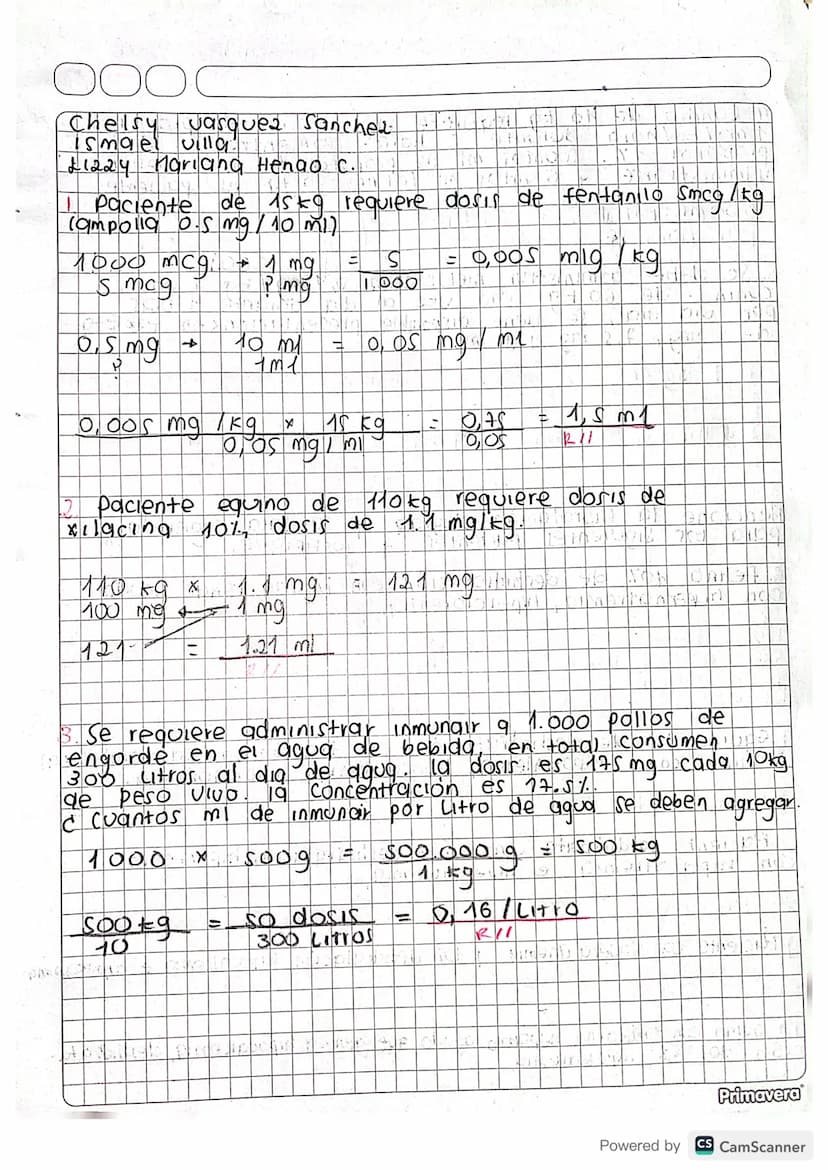 Chelsy Vasquez Sanchez
Ismael Villa
Lizzy Mariana Henao C.
1 Paciente de 15kg requiere dosis de fentanilo 5mcg/kg
(ampolla 0.5 mg/10 ml)
1000 mcg → 1 mg = 5 = 0,005 mg/kg
5 mcg ? mg 1.000
0,5mg → 10 ml = 0,05 mg/ml
? 1ml
0,005 mg/kg x 15 kg = 0,75 = 1,5 ml
0,05 mg/ml 0,05 R//
2 Paciente equino de 110kg requiere dosis de
xilacina 10%, dosis de 1.1 mg/kg.
110 kg x 1.1 mg = 121 mg
100 mg ← 1 mg
121 = 1.21 ml
R//
3 Se requiere administrar inmunair a 1.000 pollos de
engorde en el agua de bebida, en total consumen
300 Litros al dia de agua. la dosis es 175mg cada 10kg
de peso vivo. la concentración es 17.5%.
¿ cuantos ml de inmunair por Litro de agua se deben agregar.
1000 x 500g = 500.000 g = 500 kg
1 kg
500kg = 50 dosis = 0,16/Litro
10 300 Litros R//
Primavera
Powered by CS CamScanner